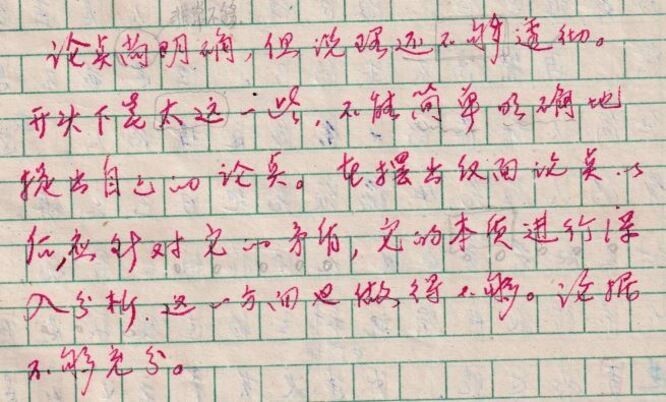 论点尚明确，但说理还不够透彻。
开头下笔太远一些，不能简单明确地
提出自己的论点。在摆出反面论点以
后，应针对它的矛盾，它的本质进行深
入分析，这一方面也做得不够。论据
不够充分。